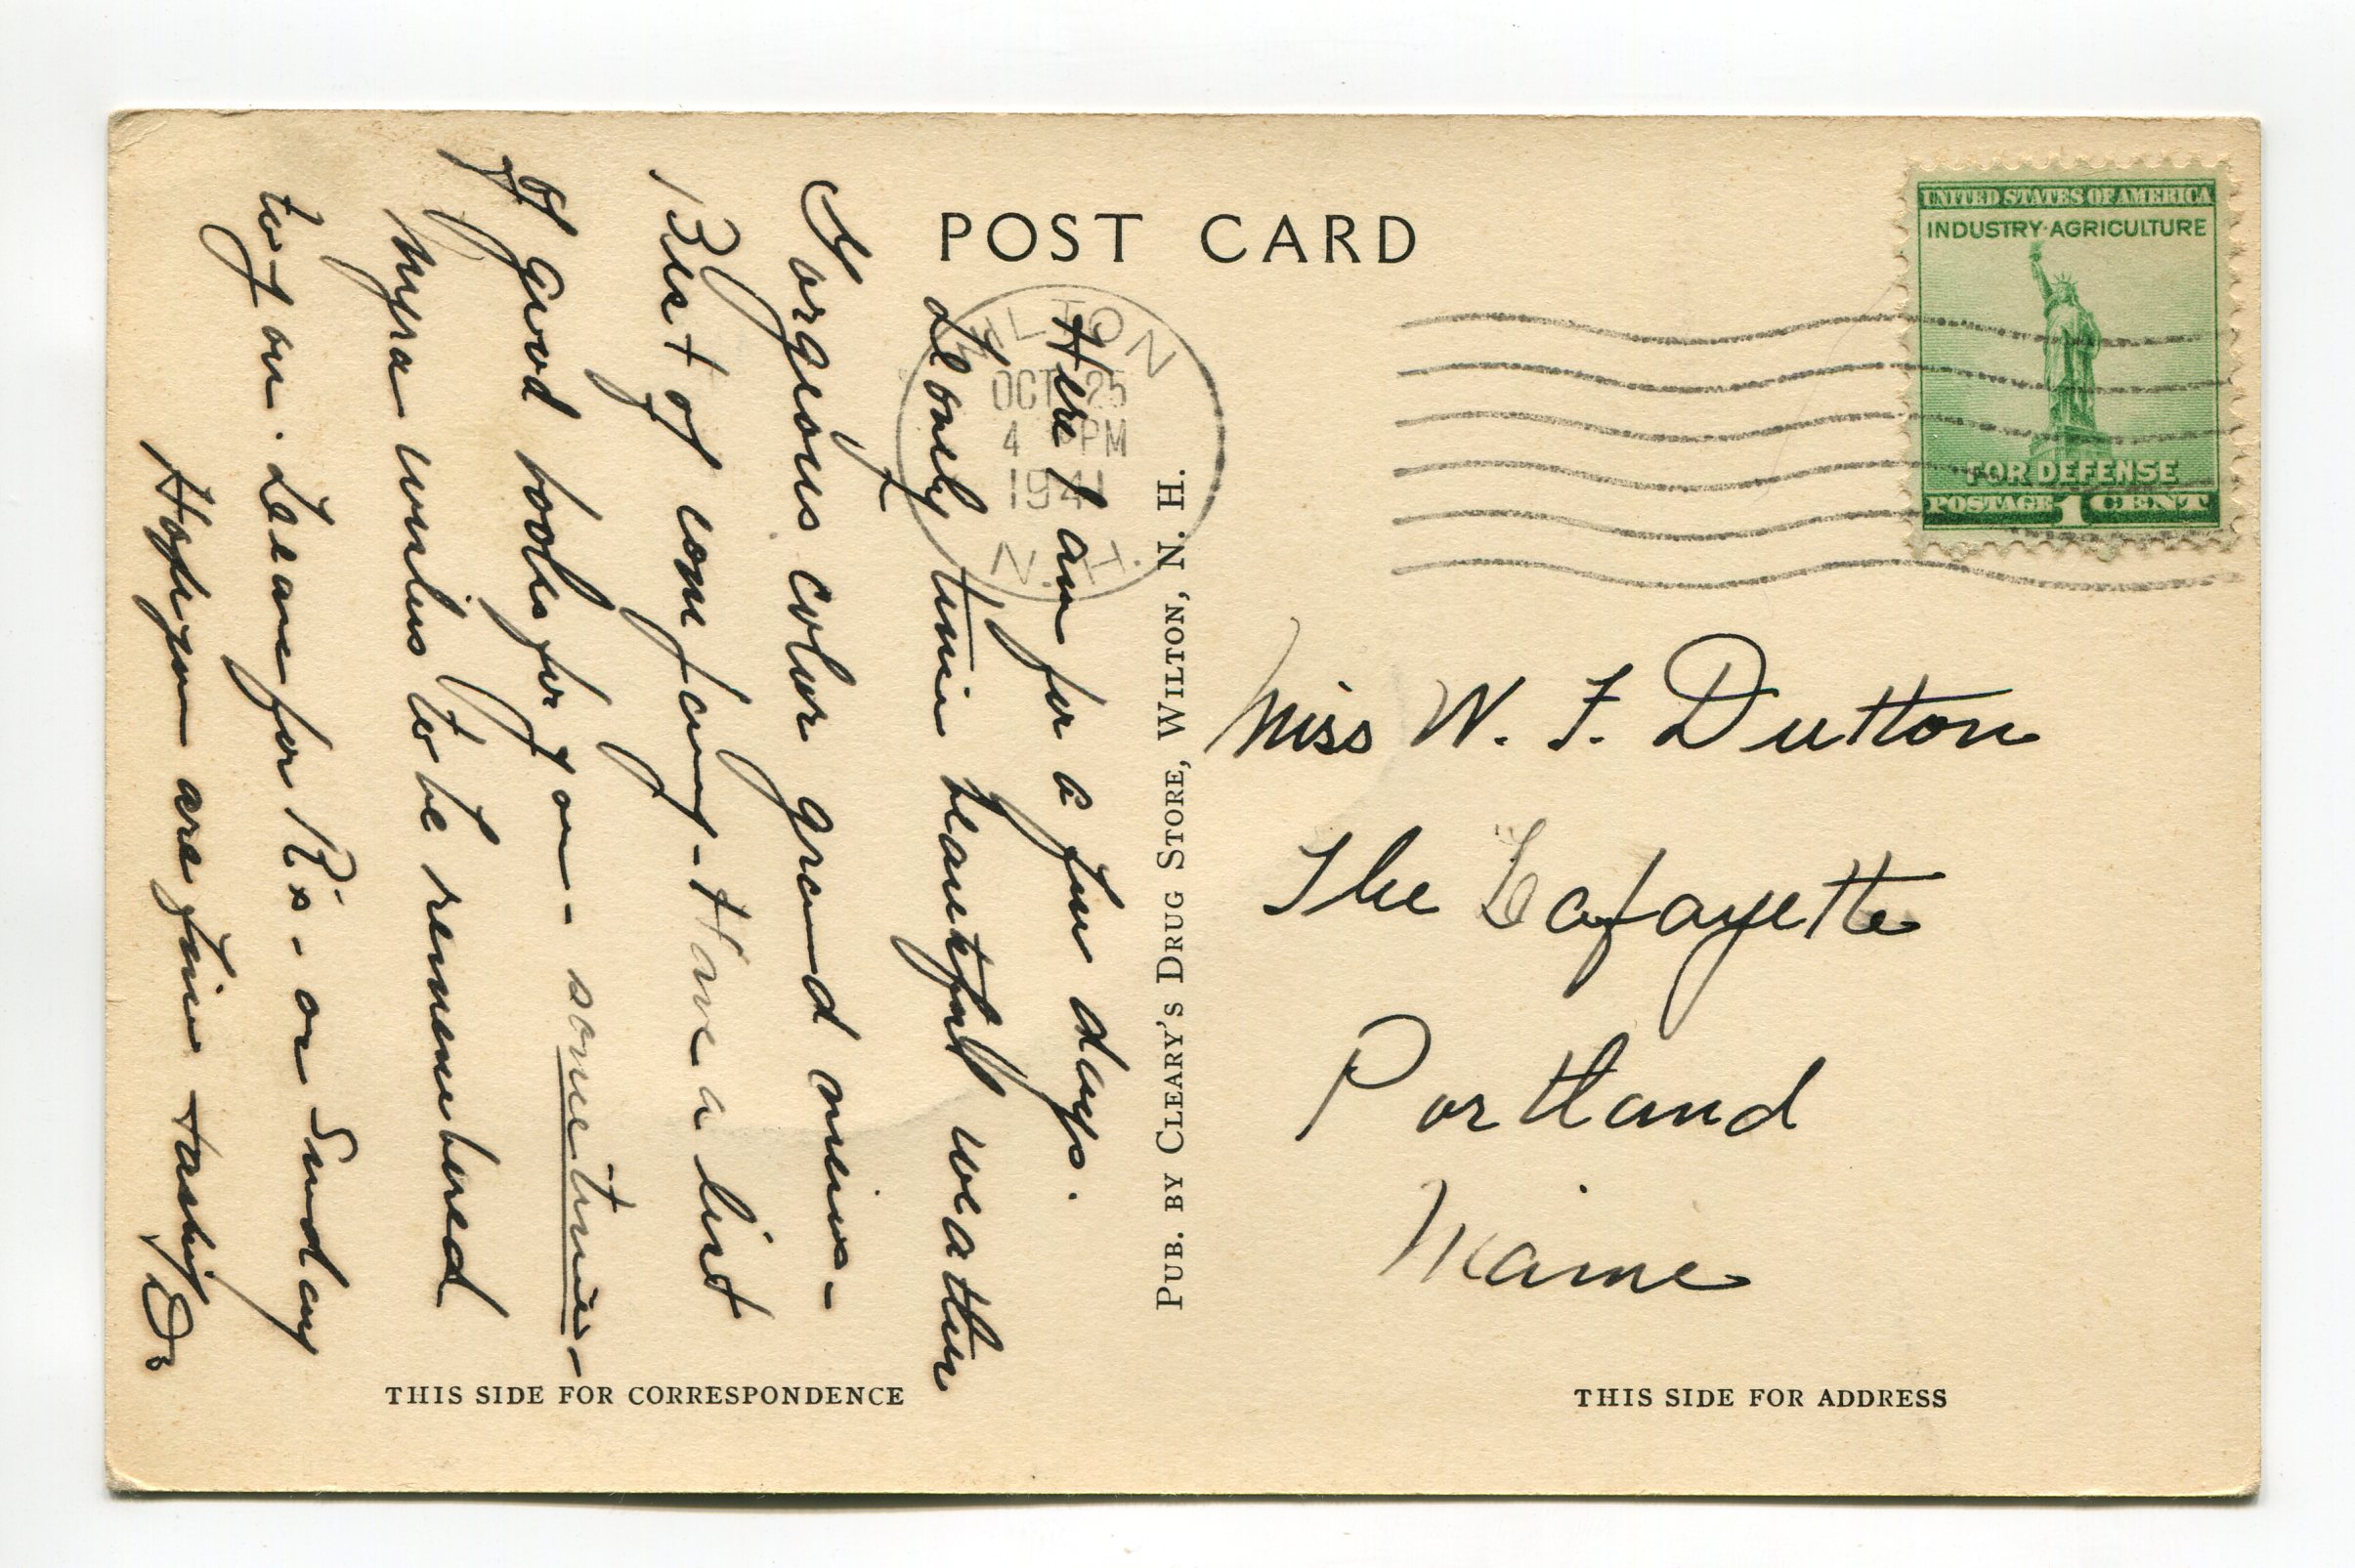 POST CARD
UNITED STATES OF AMERICA
INDUSTRY·AGRICULTURE
FOR DEFENSE
POSTAGE 1 CENT
WILTON
OCT 25
4 PM
1941
N.H.
Here I am for a few days.
Lovely time beautiful weather
Gorgeous color grand views-
Best of company - Have a list
of good books for you - sometime -
Myra wishes to be remembered
to you. Leave for R's - on Sunday
Hope you are fine
PUB. BY CLEARY'S DRUG STORE, WILTON, N. H.
Miss W. F. Dutton
The Lafayette
Portland
Maine
THIS SIDE FOR CORRESPONDENCE
THIS SIDE FOR ADDRESS